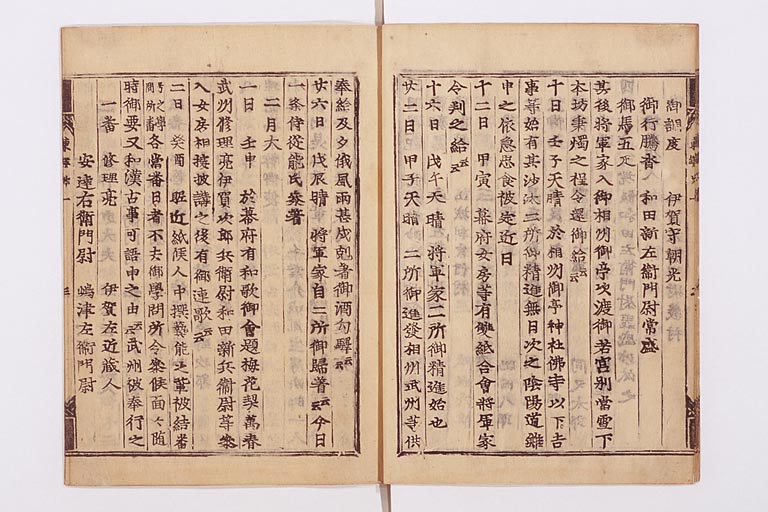 御調度　伊賀守朝光
御行騰沓　和田新左衞門尉常盛
御馬五疋
其後將軍家入御相州御亭次渡御若宮別當雪下
本坊秉燭之程令還御給云云
十日　壬子天晴　於相州御亭神社佛寺以下吉
事等始有其沙汰二所御精進無日次之陰陽道雖
申之依思食被定近日
十二日　甲寅　幕府女房等有繪合會將軍家
令判之給云云
十六日　戊午　天晴　將軍家二所御精進始也
廿二日　甲子天晴　二所御進發相州武州等供
奉給及夕俄風雨甚戌剋著御酒匂驛云云
廿六日　戊辰晴　將軍家自二所御歸著云云今日
一条侍從能氏參著
二月大
一日　壬申　於幕府有和歌御會題梅花契萬春
武州修理亮伊賀次郎兵衞尉和田新兵衞尉等參
入女房相接披講之後有御連歌云云
二日　癸酉　昵近祗候人中撰藝能之輩被結番
号之學問所番各當番日者不去御學問所令參候面々隨
時御要又和漢古事可語申之由云云武州被奉行之
一番　修理亮　伊賀左近藏人
安達右衞門尉　嶋津左衞門尉